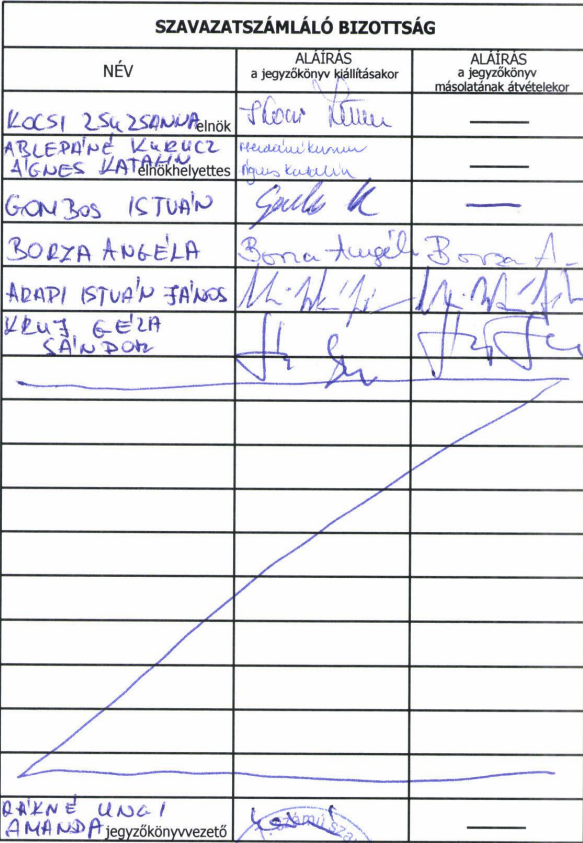 SZAVAZATSZÁMLÁLÓ BIZOTTSÁG
NÉV
ALÁÍRÁS
a jegyzőkönyv kiállításakor
ALÁÍRÁS
a jegyzőkönyv
másolatának átvételekor
KOCSI ZSUZSANNA elnök
ÁGNES KATALIN elnökhelyettes
Ágnes Katalin
GOMBOS ISTVÁN
BORZA ANGÉLA Borza Angéla Borza A.
ARAPI ISTVÁN JÁNOS
GÉZA
SÁNDOR
RÁKNÉ UNGI
AMANDA jegyzőkönyvvezető